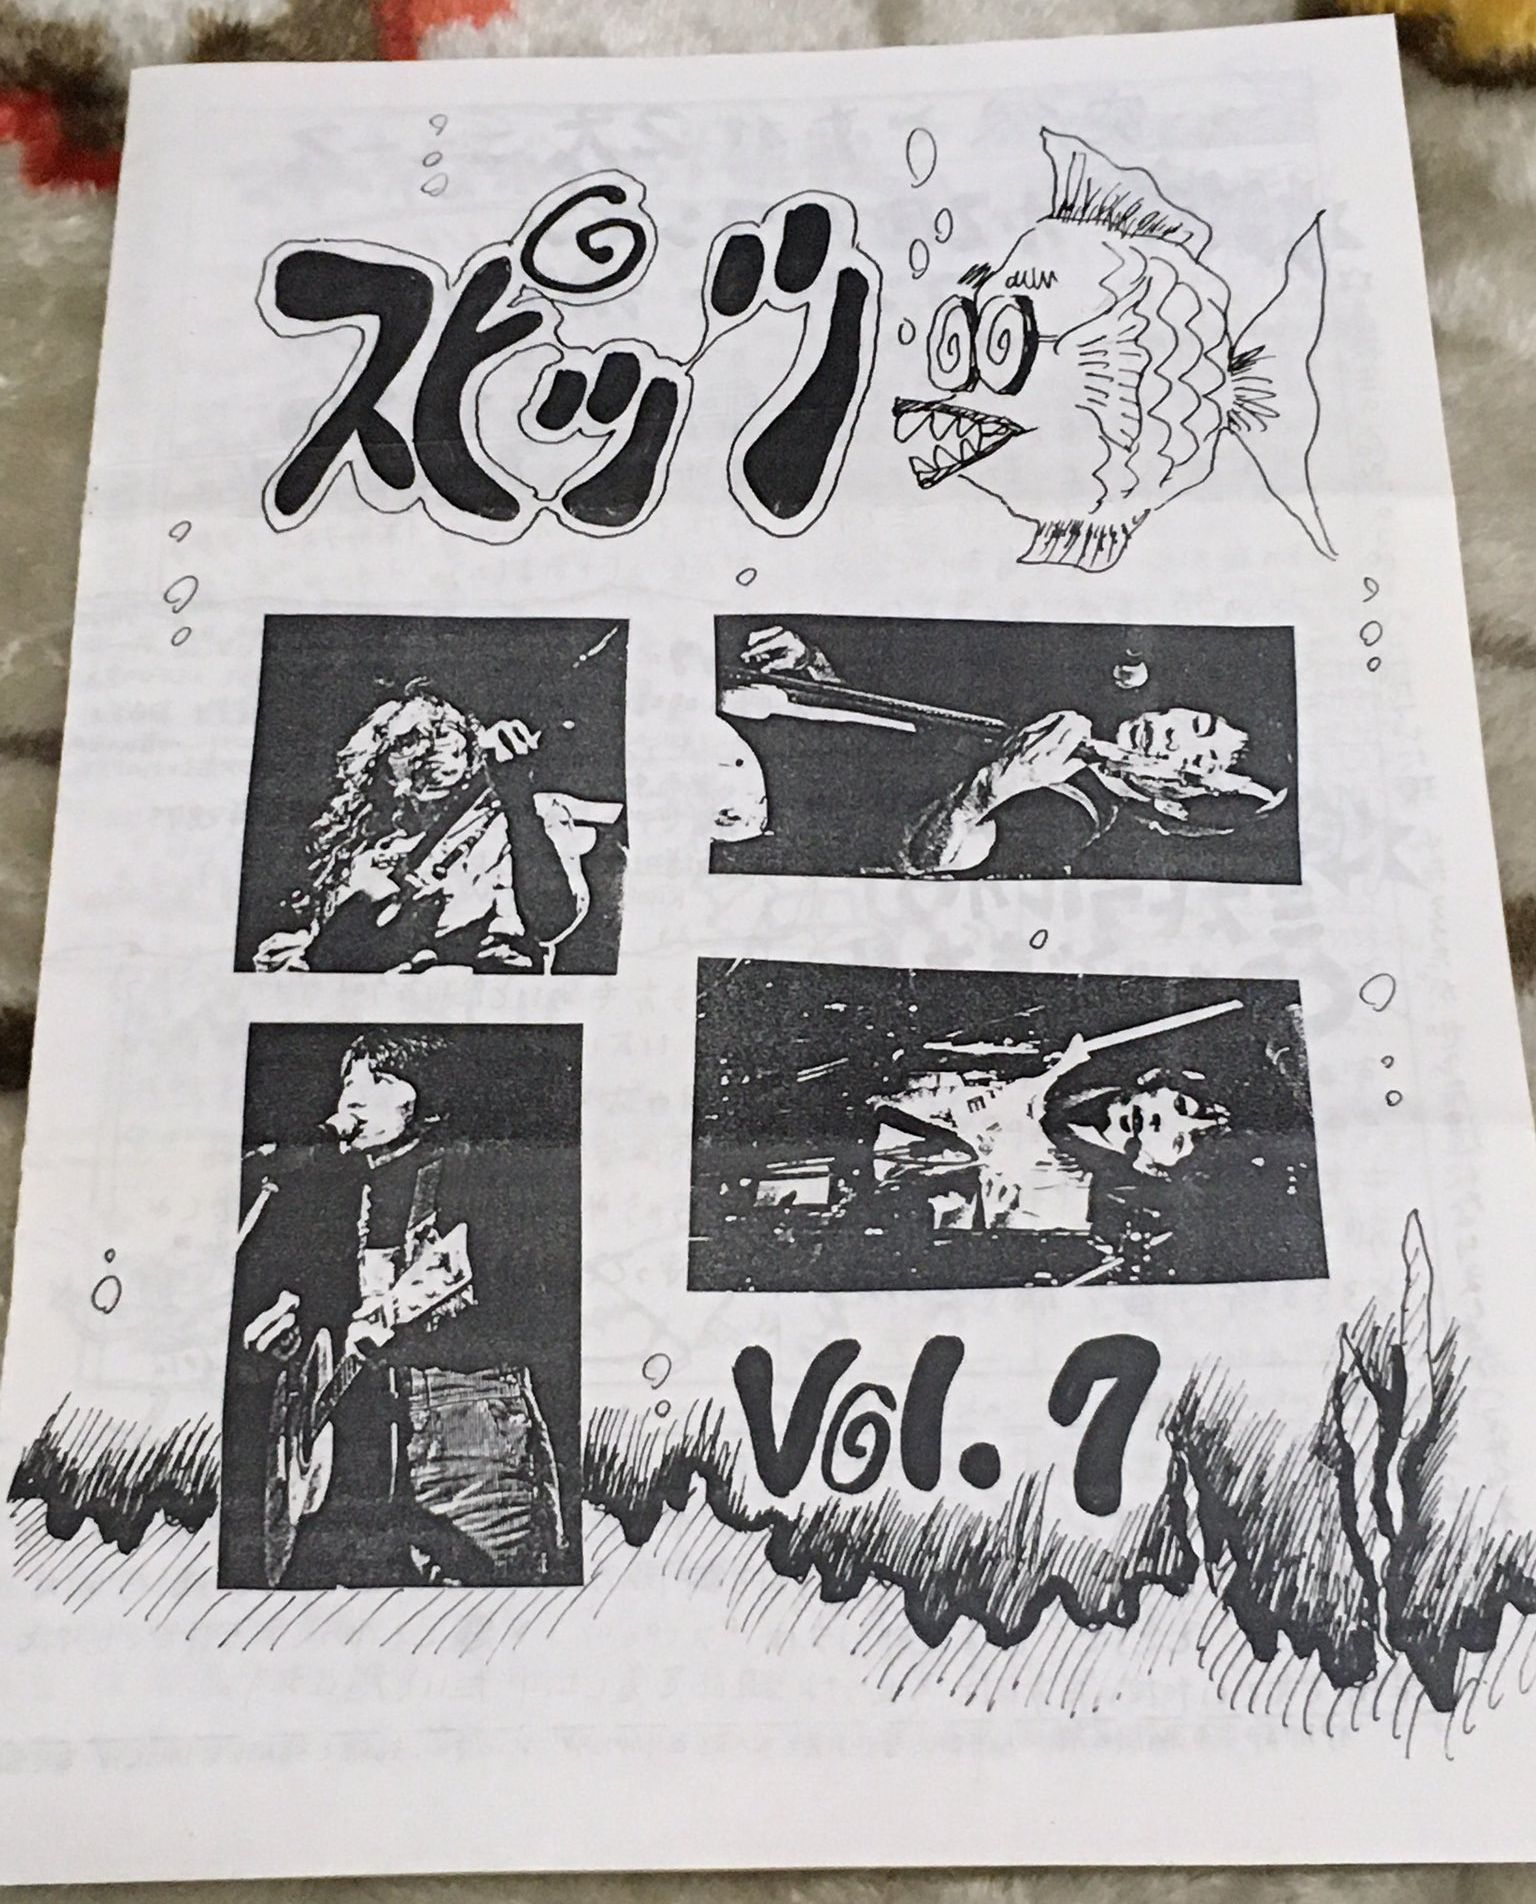 スピッツ
Vol. 7